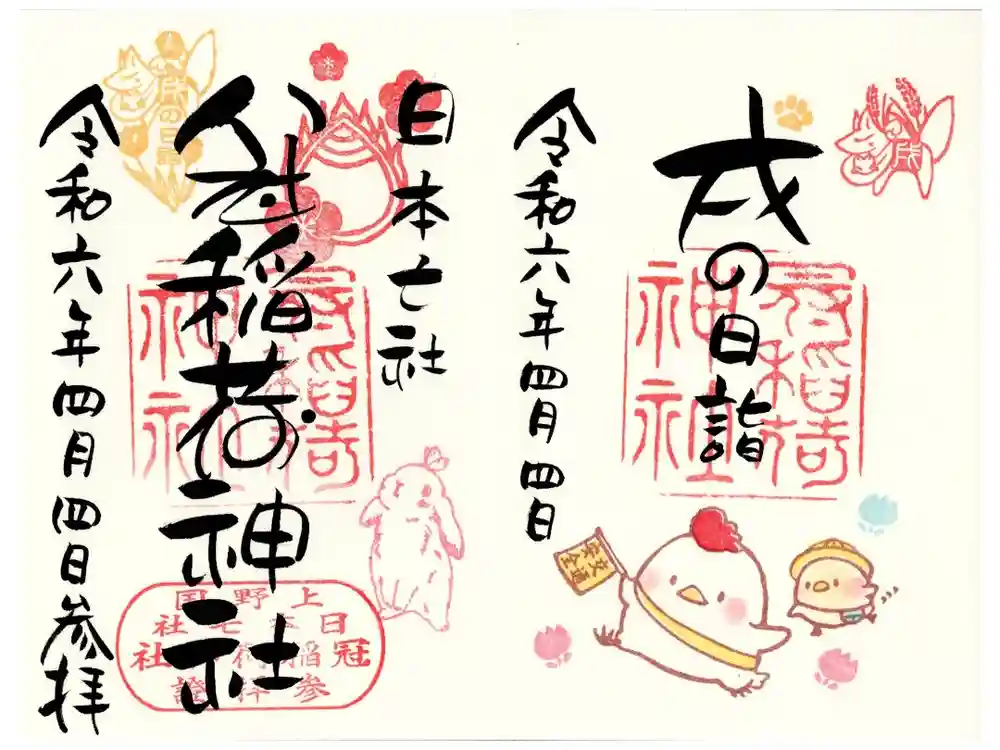 戌
戌の日詣
冠稲荷
神社
令和六年四月四日
交通
安全
日本七社
冠稲荷神社
戌の日
令和六年四月四日参拝
上野国
日本七社
冠稲荷神社
参拝證